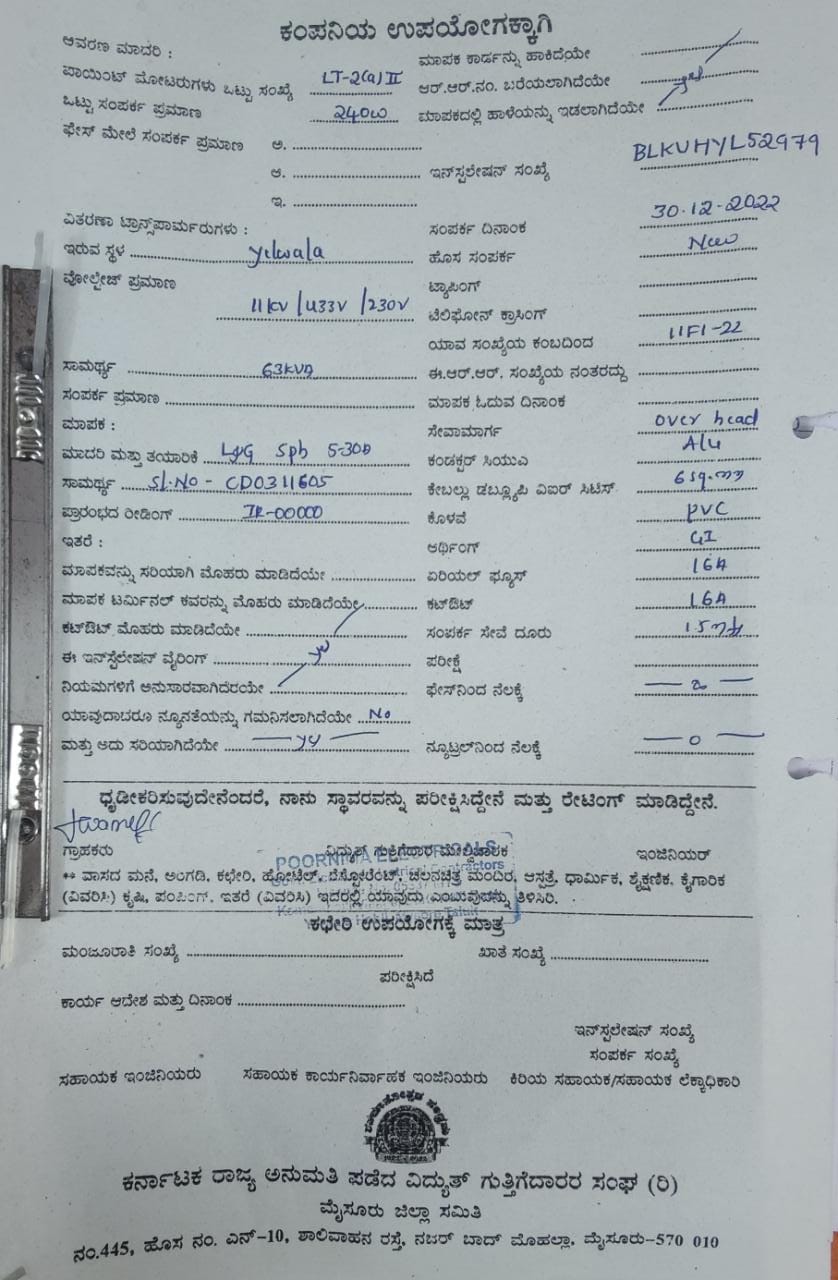 ಕಂಪನಿಯ ಉಪಯೋಗಕ್ಕಾಗಿ
ಆವರಣ ಮಾದರಿ :
ಮಾಪಕ ಕಾರ್ಡನ್ನು ಹಾಕಿದೆಯೇ
ಪಾಯಿಂಟ್ ಮೋಟರುಗಳು ಒಟ್ಟು ಸಂಖ್ಯೆ LT-2(a) II
ಆರ್.ಆರ್.ನಂ. ಬರೆಯಲಾಗಿದೆಯೇ
ಒಟ್ಟು ಸಂಪರ್ಕ ಪ್ರಮಾಣ 240W
ಮಾಪಕದಲ್ಲಿ ಹಾಳೆಯನ್ನು ಇಡಲಾಗಿದೆಯೇ
ಫೇಸ್ ಮೇಲೆ ಸಂಪರ್ಕ ಪ್ರಮಾಣ ಅ.
ಆ.
ಇನ್‌ಸ್ಟಲೇಷನ್ ಸಂಖ್ಯೆ BLKUHYL52979
ಇ.
ವಿತರಣಾ ಟ್ರಾನ್ಸ್‌ಫಾರ್ಮರುಗಳು :
ಸಂಪರ್ಕ ದಿನಾಂಕ 30-12-2022
ಇರುವ ಸ್ಥಳ Yelwala
ಹೊಸ ಸಂಪರ್ಕ New
ವೋಲ್ಟೇಜ್ ಪ್ರಮಾಣ 11KV/433V/230V
ಟ್ಯಾಪಿಂಗ್
ಟೆಲಿಫೋನ್ ಕ್ರಾಸಿಂಗ್
ಯಾವ ಸಂಖ್ಯೆಯ ಕಂಬದಿಂದ 11F1-22
ಸಾಮರ್ಥ್ಯ 63KVA
ಈ.ಆರ್.ಆರ್. ಸಂಖ್ಯೆಯ ನಂತರದ್ದು
ಸಂಪರ್ಕ ಪ್ರಮಾಣ
ಮಾಪಕ ಓದುವ ದಿನಾಂಕ
ಮಾಪಕ :
ಸೇವಾಮಾರ್ಗ over head
ಮಾದರಿ ಮತ್ತು ತಯಾರಿಕೆ L&G Sph 5-30A
ಕಂಡಕ್ಟರ್ ಸಿಯುಎ Alu
ಸಾಮರ್ಥ್ಯ Sl.No - CD0311605
ಕೇಬಲ್ಲು ಡಬ್ಲ್ಯೂಪಿ ವಿಐಆರ್ ಸಿಟಿಸ್ 6 sq.mm
ಪ್ರಾರಂಭದ ರೀಡಿಂಗ್ IR-00000
ಕೊಳವೆ PVC
ಇತರೆ :
ಅರ್ಥಿಂಗ್ GI
ಮಾಪಕವನ್ನು ಸರಿಯಾಗಿ ಮೊಹರು ಮಾಡಿದೆಯೇ
ಏರಿಯಲ್ ಫ್ಯೂಸ್ 16A
ಮಾಪಕ ಟರ್ಮಿನಲ್ ಕವರನ್ನು ಮೊಹರು ಮಾಡಿದೆಯೇ
ಕಟ್‌ಔಟ್ 16A
ಕಟ್‌ಔಟ್ ಮೊಹರು ಮಾಡಿದೆಯೇ
ಸಂಪರ್ಕ ಸೇವೆ ದೂರು
ಈ ಇನ್‌ಸ್ಟಲೇಷನ್ ವೈರಿಂಗ್
ಪರೀಕ್ಷೆ
ನಿಯಮಗಳಿಗೆ ಅನುಸಾರವಾಗಿದೆರಯೇ
ಫೇಸ್‌ನಿಂದ ನೆಲಕ್ಕೆ
ಯಾವುದಾದರೂ ನ್ಯೂನತೆಯನ್ನು ಗಮನಿಸಲಾಗಿದೆಯೇ No
ಮತ್ತು ಅದು ಸರಿಯಾಗಿದೆಯೇ
ನ್ಯೂಟ್ರಲ್‌ನಿಂದ ನೆಲಕ್ಕೆ — 0 —
ಧೃಡೀಕರಿಸುವುದೇನೆಂದರೆ, ನಾನು ಸ್ಥಾವರವನ್ನು ಪರೀಕ್ಷಿಸಿದ್ದೇನೆ ಮತ್ತು ರೇಟಿಂಗ್ ಮಾಡಿದ್ದೇನೆ.
ಗ್ರಾಹಕರು ವಿದ್ಯುತ್ ಗುತ್ತಿಗೆದಾರ ಮೇಲ್ವಿಚಾರಕ ಇಂಜಿನಿಯರ್
POORNIMA ELECTRICALS
** ವಾಸದ ಮನೆ, ಅಂಗಡಿ, ಕಛೇರಿ, ಹೋಟೆಲ್, ರೆಸ್ಟೋರೆಂಟ್, ಚಲನಚಿತ್ರ ಮಂದಿರ, ಆಸ್ಪತ್ರೆ, ಧಾರ್ಮಿಕ, ಶೈಕ್ಷಣಿಕ, ಕೈಗಾರಿಕ
(ವಿವರಿಸಿ) ಕೃಷಿ, ಪಂಪಿಂಗ್, ಇತರೆ (ವಿವರಿಸಿ) ಇದರಲ್ಲಿ ಯಾವುದು ಎಂಬುವುದನ್ನು ತಿಳಿಸಿರಿ.
ಕಛೇರಿ ಉಪಯೋಗಕ್ಕೆ ಮಾತ್ರ
ಮಂಜೂರಾತಿ ಸಂಖ್ಯೆ ಖಾತೆ ಸಂಖ್ಯೆ
ಪರೀಕ್ಷಿಸಿದೆ
ಕಾರ್ಯ ಆದೇಶ ಮತ್ತು ದಿನಾಂಕ
ಇನ್‌ಸ್ಟಲೇಷನ್ ಸಂಖ್ಯೆ
ಸಂಪರ್ಕ ಸಂಖ್ಯೆ
ಸಹಾಯಕ ಇಂಜಿನಿಯರು ಸಹಾಯಕ ಕಾರ್ಯನಿರ್ವಾಹಕ ಇಂಜಿನಿಯರು ಕಿರಿಯ ಸಹಾಯಕ/ಸಹಾಯಕ ಲೆಕ್ಕಾಧಿಕಾರಿ
ಕರ್ನಾಟಕ ರಾಜ್ಯ ಅನುಮತಿ ಪಡೆದ ವಿದ್ಯುತ್ ಗುತ್ತಿಗೆದಾರರ ಸಂಘ (ರಿ)
ಮೈಸೂರು ಜಿಲ್ಲಾ ಸಮಿತಿ
ನಂ.445, ಹೊಸ ನಂ. ಎನ್-10, ಶಾಲಿವಾಹನ ರಸ್ತೆ, ನಜರ್ ಬಾದ್ ಮೊಹಲ್ಲಾ, ಮೈಸೂರು-570 010